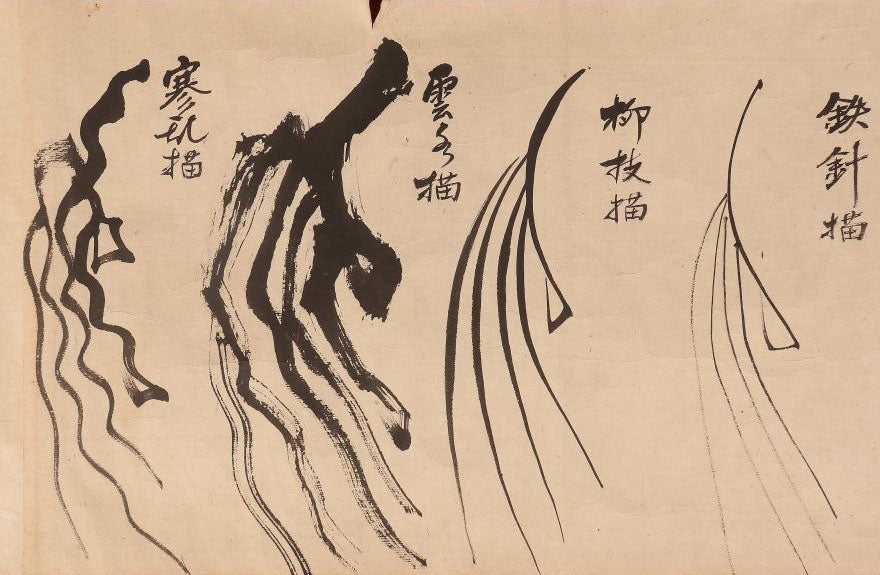 鉄針描
柳枝描
雲水描
寒描